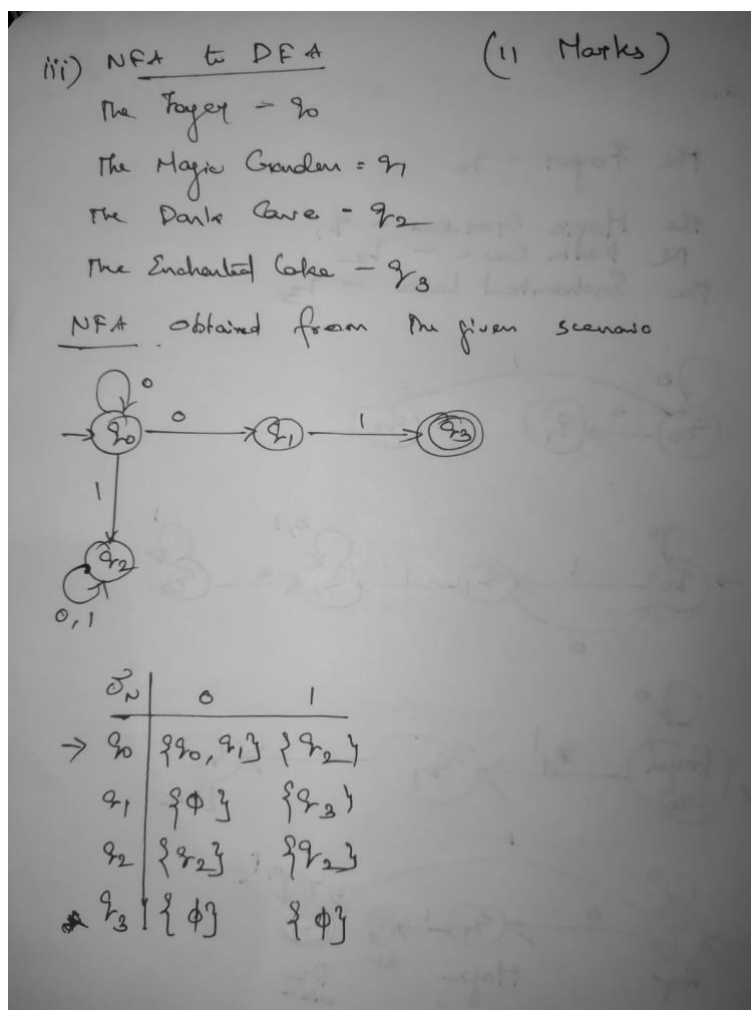 iii) NFA to DFA (11 Marks)
The Foyer - q0
The Magic Garden = q1
The Dark Cave - q2
The Enchanted Lake - q3
NFA obtained from the given scenario
0
q0 0 q1 1 q3
1
q2
0,1
δN 0 1
→ q0 {q0, q1} {q2}
q1 {φ} {q3}
q2 {q2} {q2}
* q3 {φ} {φ}